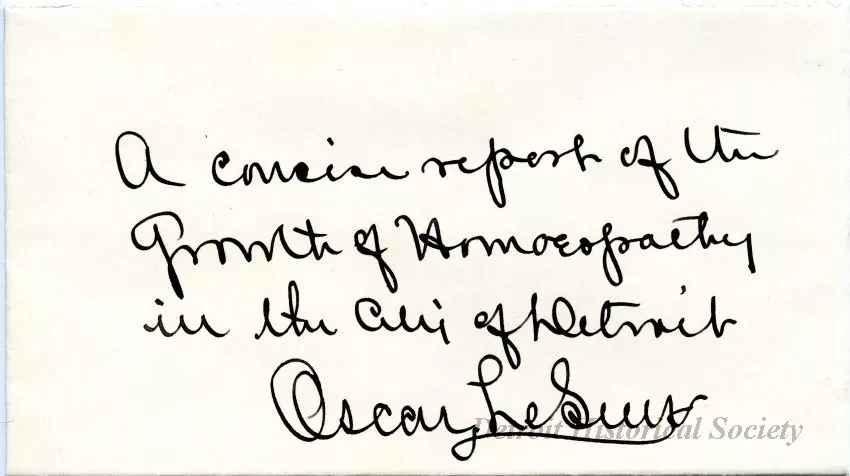 A concise report of the
Growth of Homoeopathy
in the City of Detroit
Oscar LeSeure
Detroit Historical Society